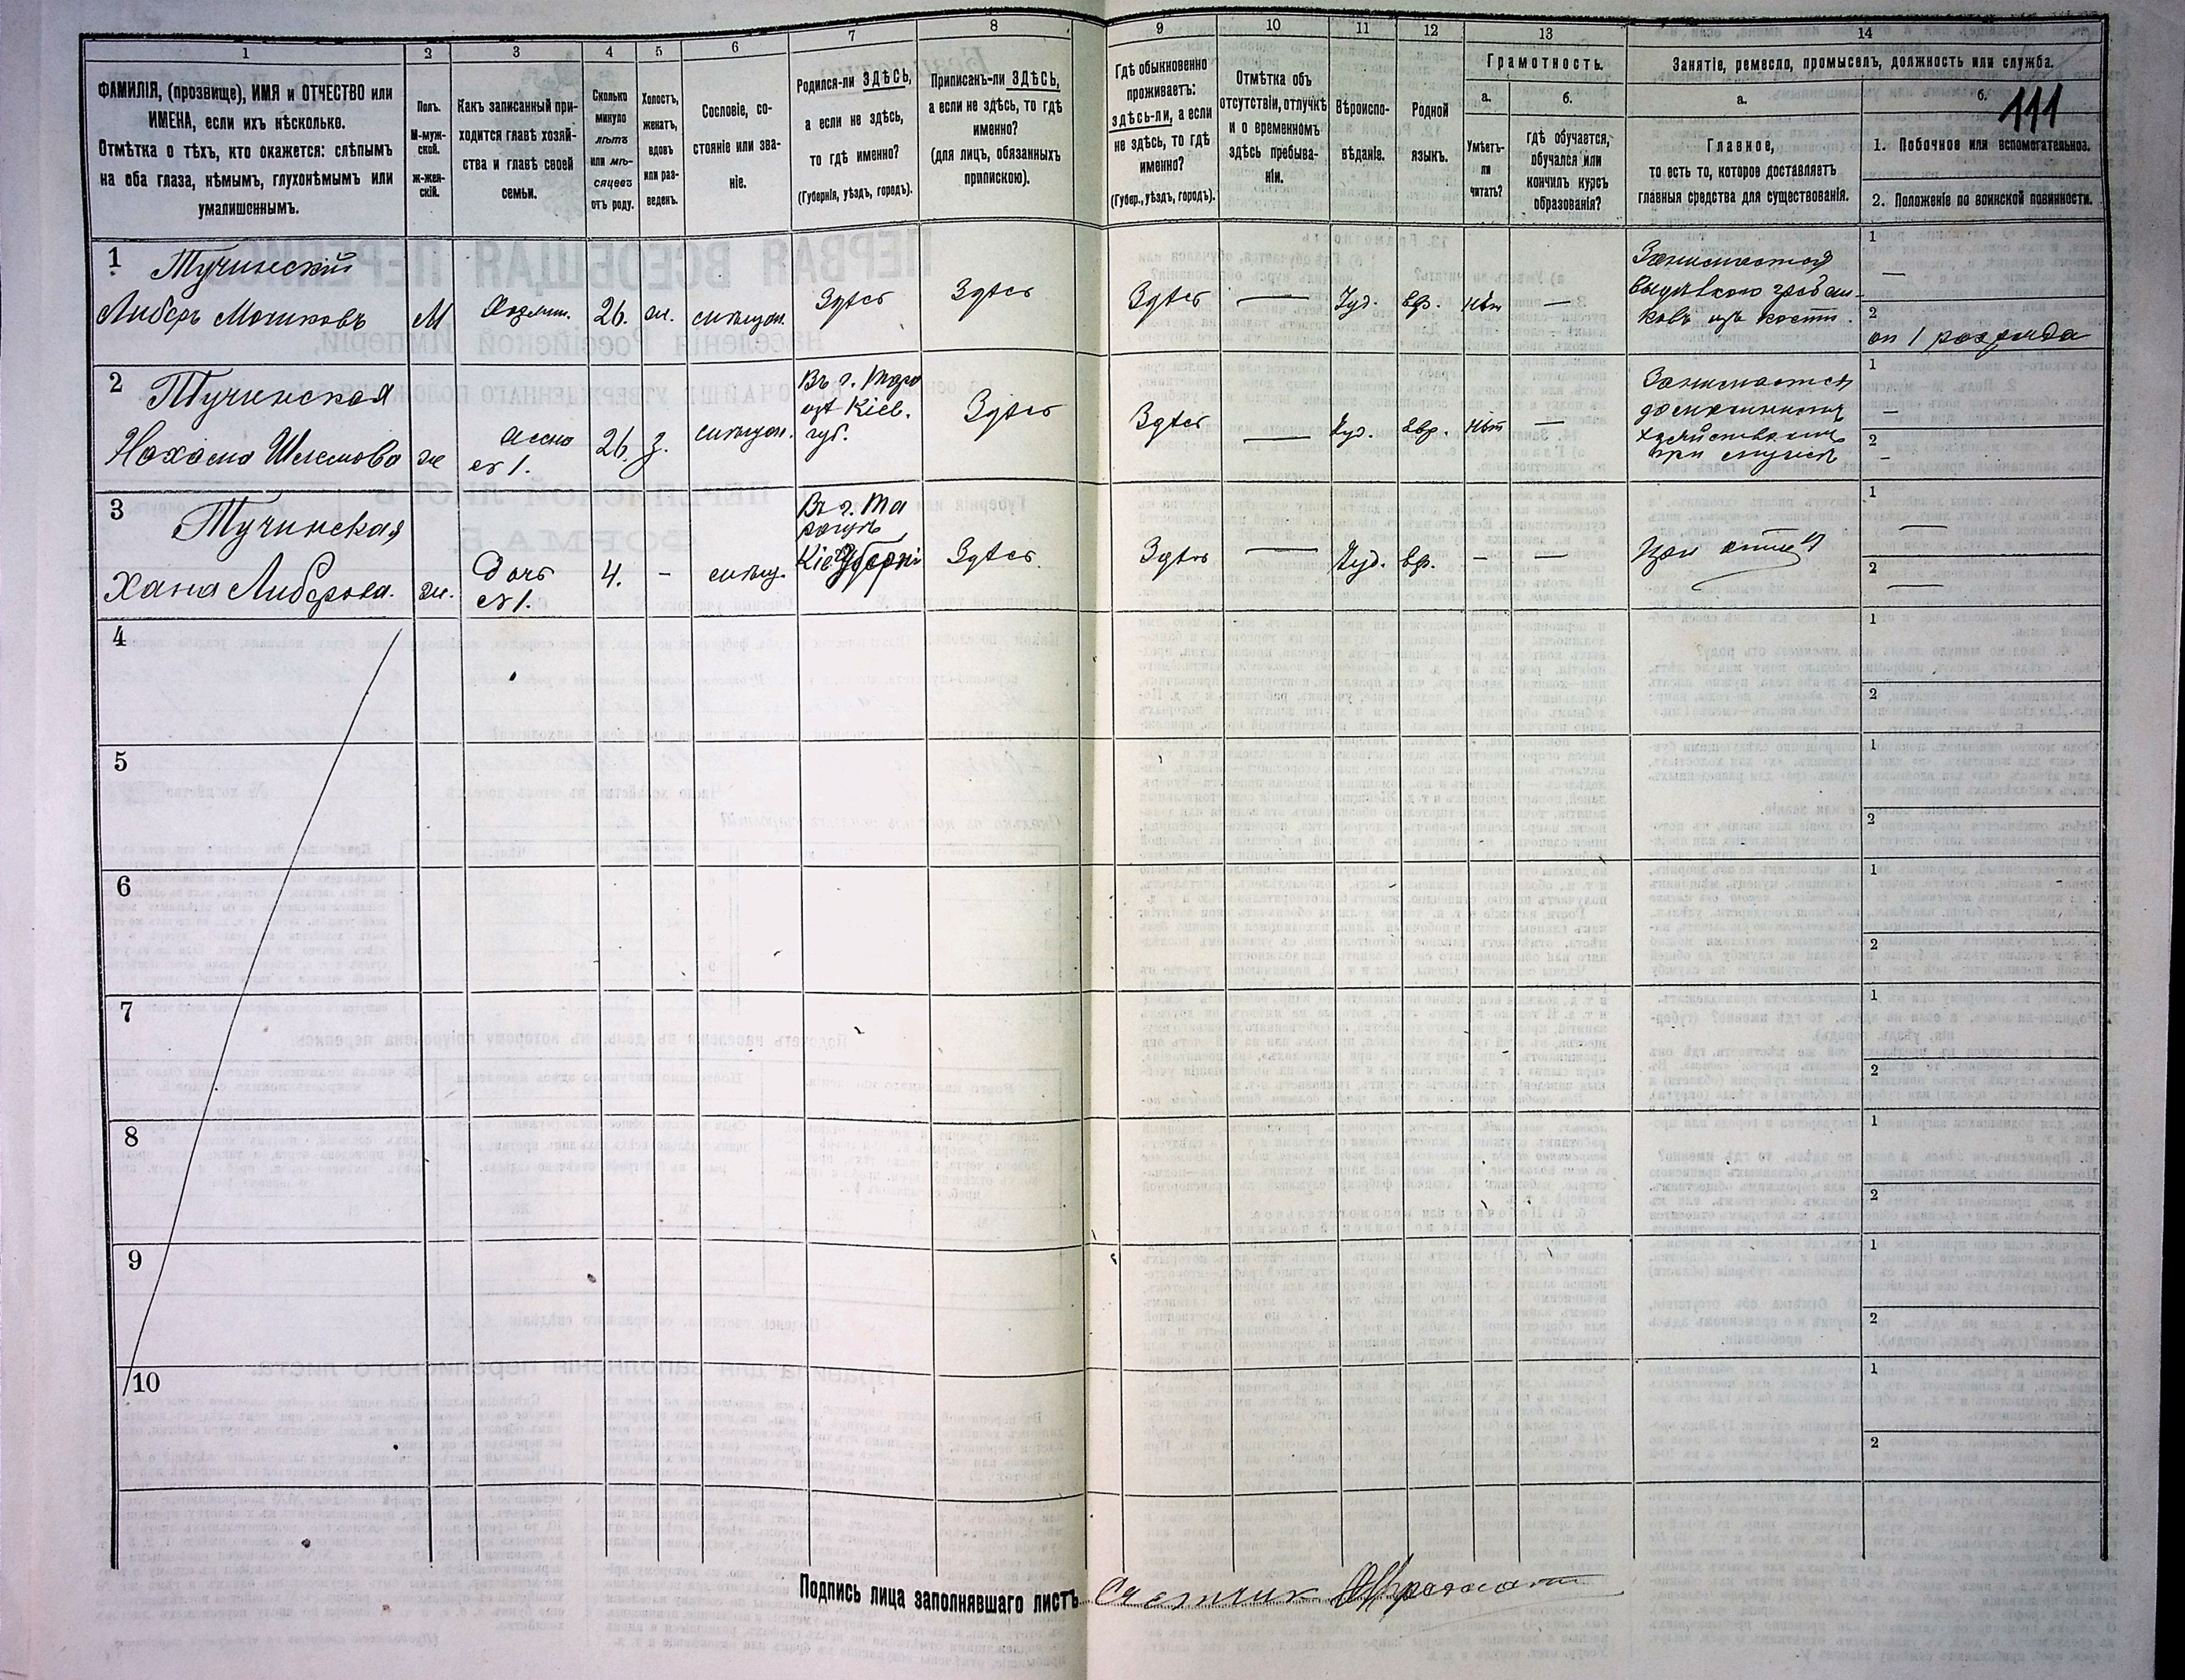 1 2 3 4 5 6 7 8 9 10 11 12 13 14
ФАМИЛІЯ, (прозвище), ИМЯ и ОТЧЕСТВО или
ИМЕНА, если ихъ нѣсколько.
Отмѣтка о тѣхъ, кто окажется: слѣпымъ
на оба глаза, нѣмымъ, глухонѣмымъ или
умалишеннымъ.
Полъ.
М-муж-
ской.
Ж-жен-
скій.
Какъ записанный при-
ходится главѣ хозяй-
ства и главѣ своей
семьи.
Сколько
минуло
лѣтъ
или мѣ-
сяцевъ
отъ роду.
Холостъ,
женатъ,
вдовъ
или раз-
веденъ.
Сословіе, со-
стояніе или зва-
ніе.
Родился-ли ЗДѢСЬ,
а если не здѣсь,
то гдѣ именно?
(Губернія, уѣздъ, городъ).
Приписанъ-ли ЗДѢСЬ,
а если не здѣсь, то гдѣ
именно?
(для лицъ, обязанныхъ
припискою).
Гдѣ обыкновенно
проживаетъ:
здѣсь-ли, а если
не здѣсь, то гдѣ
именно?
(Губер., уѣздъ, городъ).
Отмѣтка объ
отсутствіи, отлучкѣ
и о временномъ
здѣсь пребыва-
ніи.
Вѣроиспо-
вѣданіе.
Родной
языкъ.
Грамотность.
а.
Умѣетъ-
ли
читать?
б.
гдѣ обучается,
обучался или
кончилъ курсъ
образованія?
Занятіе, ремесло, промыселъ, должность или служба.
а.
Главное,
то есть то, которое доставляетъ
главныя средства для существованія.
б.
111
1. Побочное или вспомогательное.
2. Положеніе по воинской повинности.
1 Тучинскій
Либеръ Мошковъ
М
Хозяин.
26.
ж.
мѣщан.
Здѣсь
Здѣсь
Здѣсь
—
Іуд.
евр.
нѣт
—
Занимается
выдѣлкою гребеш-
ковъ изъ кости.
1
—
2
оп 1 разряда
2 Тучинская
Нахама Шлемова
ж
жена
съ 1.
26.
з.
мѣщан.
Въ г. Тара
щѣ Кіев.
губ.
Здѣсь
Здѣсь
—
Іуд.
евр.
нѣт
—
Занимается
домашнимъ
хозяйствомъ
при мужѣ
1
—
2
—
3 Тучинская
Хана Либерова.
ж.
Дочь
съ 1.
4.
—
мѣщ.
Въ г. Та
ращѣ
Кіе. Губерні
Здѣсь.
Здѣсь
—
Іуд.
евр.
—
—
При отцѣ
1
—
2
—
4
1
2
5
1
2
6
1
2
7
1
2
8
1
2
9
1
2
10
1
2
Подпись лица заполнявшаго листъ Счетчик